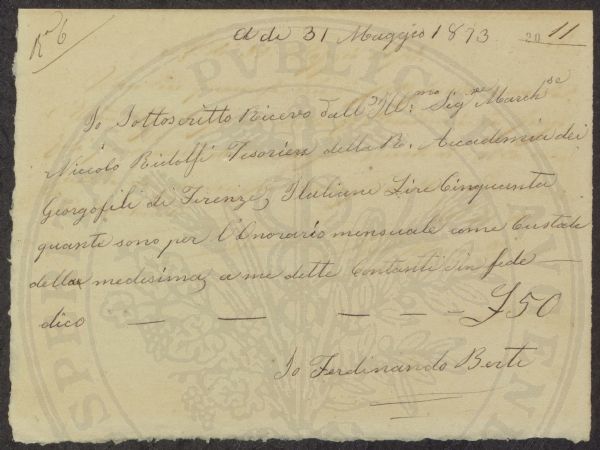 Rn 6
A di 31 Maggio 1873
20 11
Io Sottoscritto Ricevo dall' Ill:mo Sigre Marchse
Niccolo Ridolfi Tesoriere della R. Accademia dei
Georgofili di Firenze, Italiane Lire Cinquanta
quante sono per l'Onorario mensuale come Custode
della medesima, a me dette Contanti in fede
dico — — — — — £50
Io Ferdinando Berti
PVBLICAE
PROSPERITATI